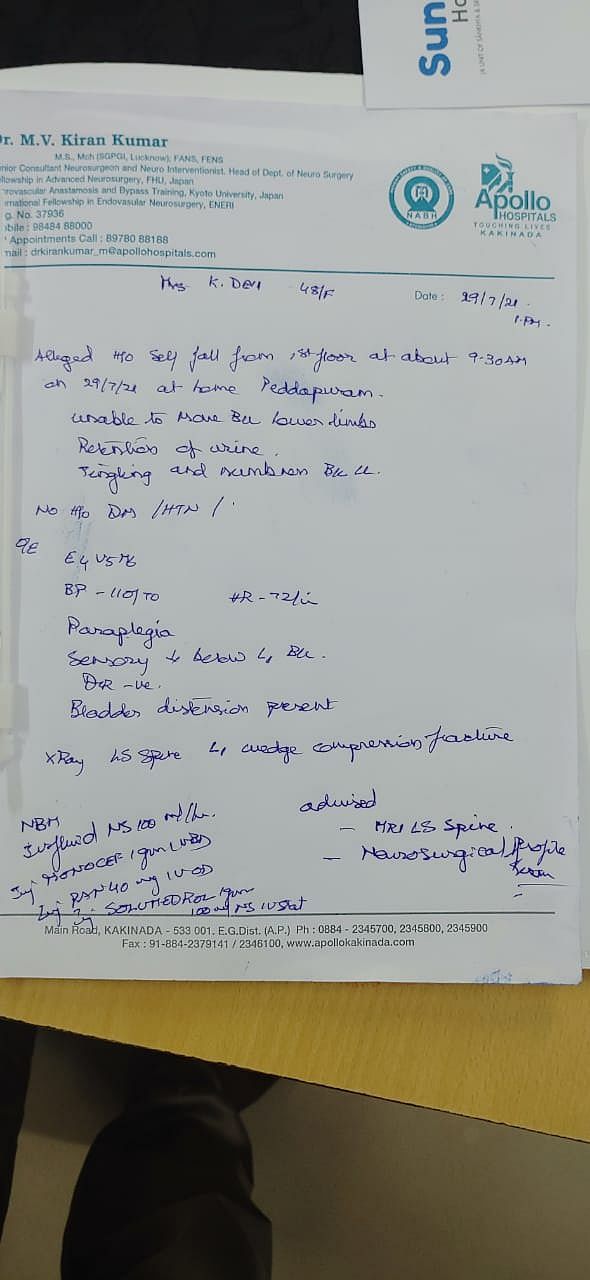 Sun
Ho
Dr. M.V. Kiran Kumar
M.S., Mch (SGPGI, Lucknow), FANS, FENS
nior Consultant Neurosurgeon and Neuro Interventionist. Head of Dept. of Neuro Surgery
llowship in Advanced Neurosurgery, FHU, Japan
rovascular Anastamosis and Bypass Training, Kyoto University, Japan
rnational Fellowship in Endovascular Neurosurgery, ENERI
g. No. 37936
obile : 98484 68000
Appointments Call : 89780 88188
mail : drkirankumar_m@apollohospitals.com
NABH
Apollo
HOSPITALS
TOUCHING LIVES
KAKINADA
Mrs K. DEVI 48/F
Date : 29/7/21
1 PM
Alleged H/o Self fall from 1st floor at about 9-30AM
on 29/7/21 at home Peddapuram.
unable to move B/L lower limbs
Retention of urine.
Tingling and numbness B/L LL.
No H/o DM /HTN /
O/E
E4 V5 M6
BP - 110/70 HR - 72/
Paraplegia
Sensory ↓ below L1 B/L.
-ve.
Bladder distension present
X Ray LS Spine L1 wedge compression fracture
NBM
Ivfluid NS 100 ml/hr.
Inj MONOCEF 1gm IV BD
Inj PAN 40 mg IV OD
Inj SOLUMEDROL 1gm
100 NS IV Stat
advised
- MRI LS Spine.
- Neurosurgical Profile
Main Road, KAKINADA - 533 001. E.G.Dist. (A.P.) Ph : 0884 - 2345700, 2345800, 2345900
Fax : 91-884-2379141 / 2346100, www.apollokakinada.com